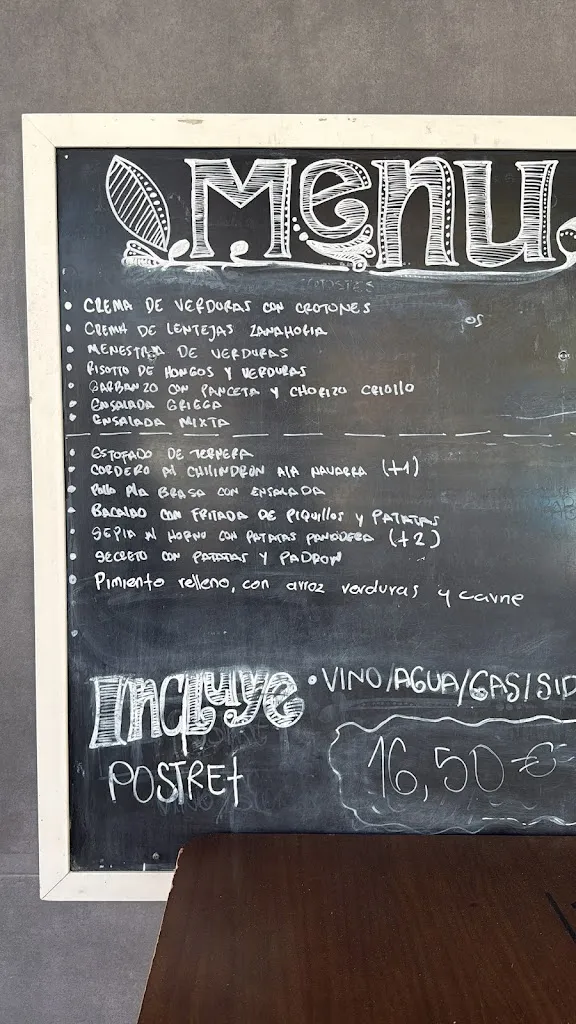 Menu
• CREMA DE VERDURAS CON CROTONES
• CREMA DE LENTEJAS ZANAHORIA
• MENESTRA DE VERDURAS
• RISOTTO DE HONGOS Y VERDURAS
• GARBANZO CON PANCETA Y CHORIZO CRIOLLO
• ENSALADA GRIEGA
• ENSALADA MIXTA
• ESTOFADO DE TERNERA
• CORDERO AL CHILINDRON A LA NAVARRA (+1)
• POLLO A LA BRASA CON ENSALADA
• BACALAO CON FRITADA DE PIQUILLOS Y PATATAS
• SEPIA AL HORNO CON PATATAS PANADERA (+2)
• SECRETO CON PATATAS Y PADRON
• Pimiento relleno, con arroz verduras y carne
Incluye • VINO/AGUA/GAS/SID
POSTRE+
16,50€